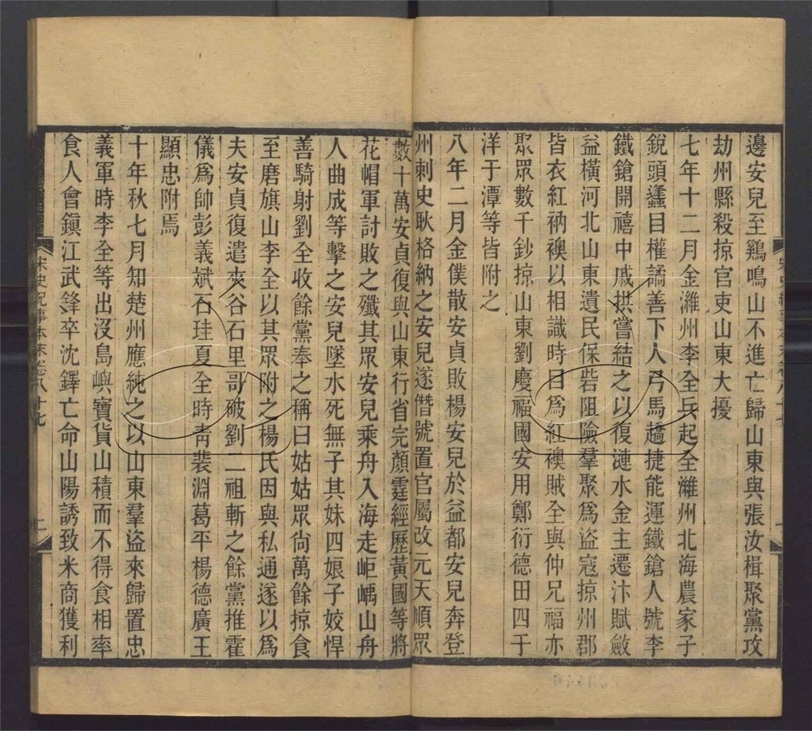 邊安兒至鷄鳴山不進亡歸山東與張汝楫聚黨攻
劫州縣殺掠官吏山東大擾
七年十二月金濰州李全兵起全濰州北海農家子
銳頭蠭目權譎善下人弓馬趫捷能運鐵鎗人號李
鐵鎗開禧中戚拱嘗結之以復漣水金主遷汴賦斂
益橫河北山東遺民保砦阻險羣聚爲盜寇掠州郡
皆衣紅衲襖以相識時目爲紅襖賊全與仲兄福亦
聚眾數千鈔掠山東劉慶福國安用鄭衍德田四于
洋于潭等皆附之
八年二月金僕散安貞敗楊安兒於益都安兒奔登
州刺史耿格納之安兒遂僭號置官屬改元天順眾
數十萬安貞復與山東行省完顏霆經歷黃國等將
花帽軍討敗之殲其眾安兒乘舟入海走岠嵎山舟
人曲成等擊之安兒墜水死無子其妹四娘子姣悍
善騎射劉全收餘黨奉之稱曰姑姑眾尙萬餘掠食
至磨旗山李全以其眾附之楊氏因與私通遂以爲
夫安貞復遣夾谷石里哥破劉二祖斬之餘黨推霍
儀爲帥彭義斌石珪夏全時靑裴淵葛平楊德廣王
顯忠附焉
十年秋七月知楚州應純之以山東羣盜來歸置忠
義軍時李全等出沒島嶼寶貨山積而不得食相率
食人會鎭江武鋒卒沈鐸亡命山陽誘致米商獲利
宋史紀事本末卷八十七
二